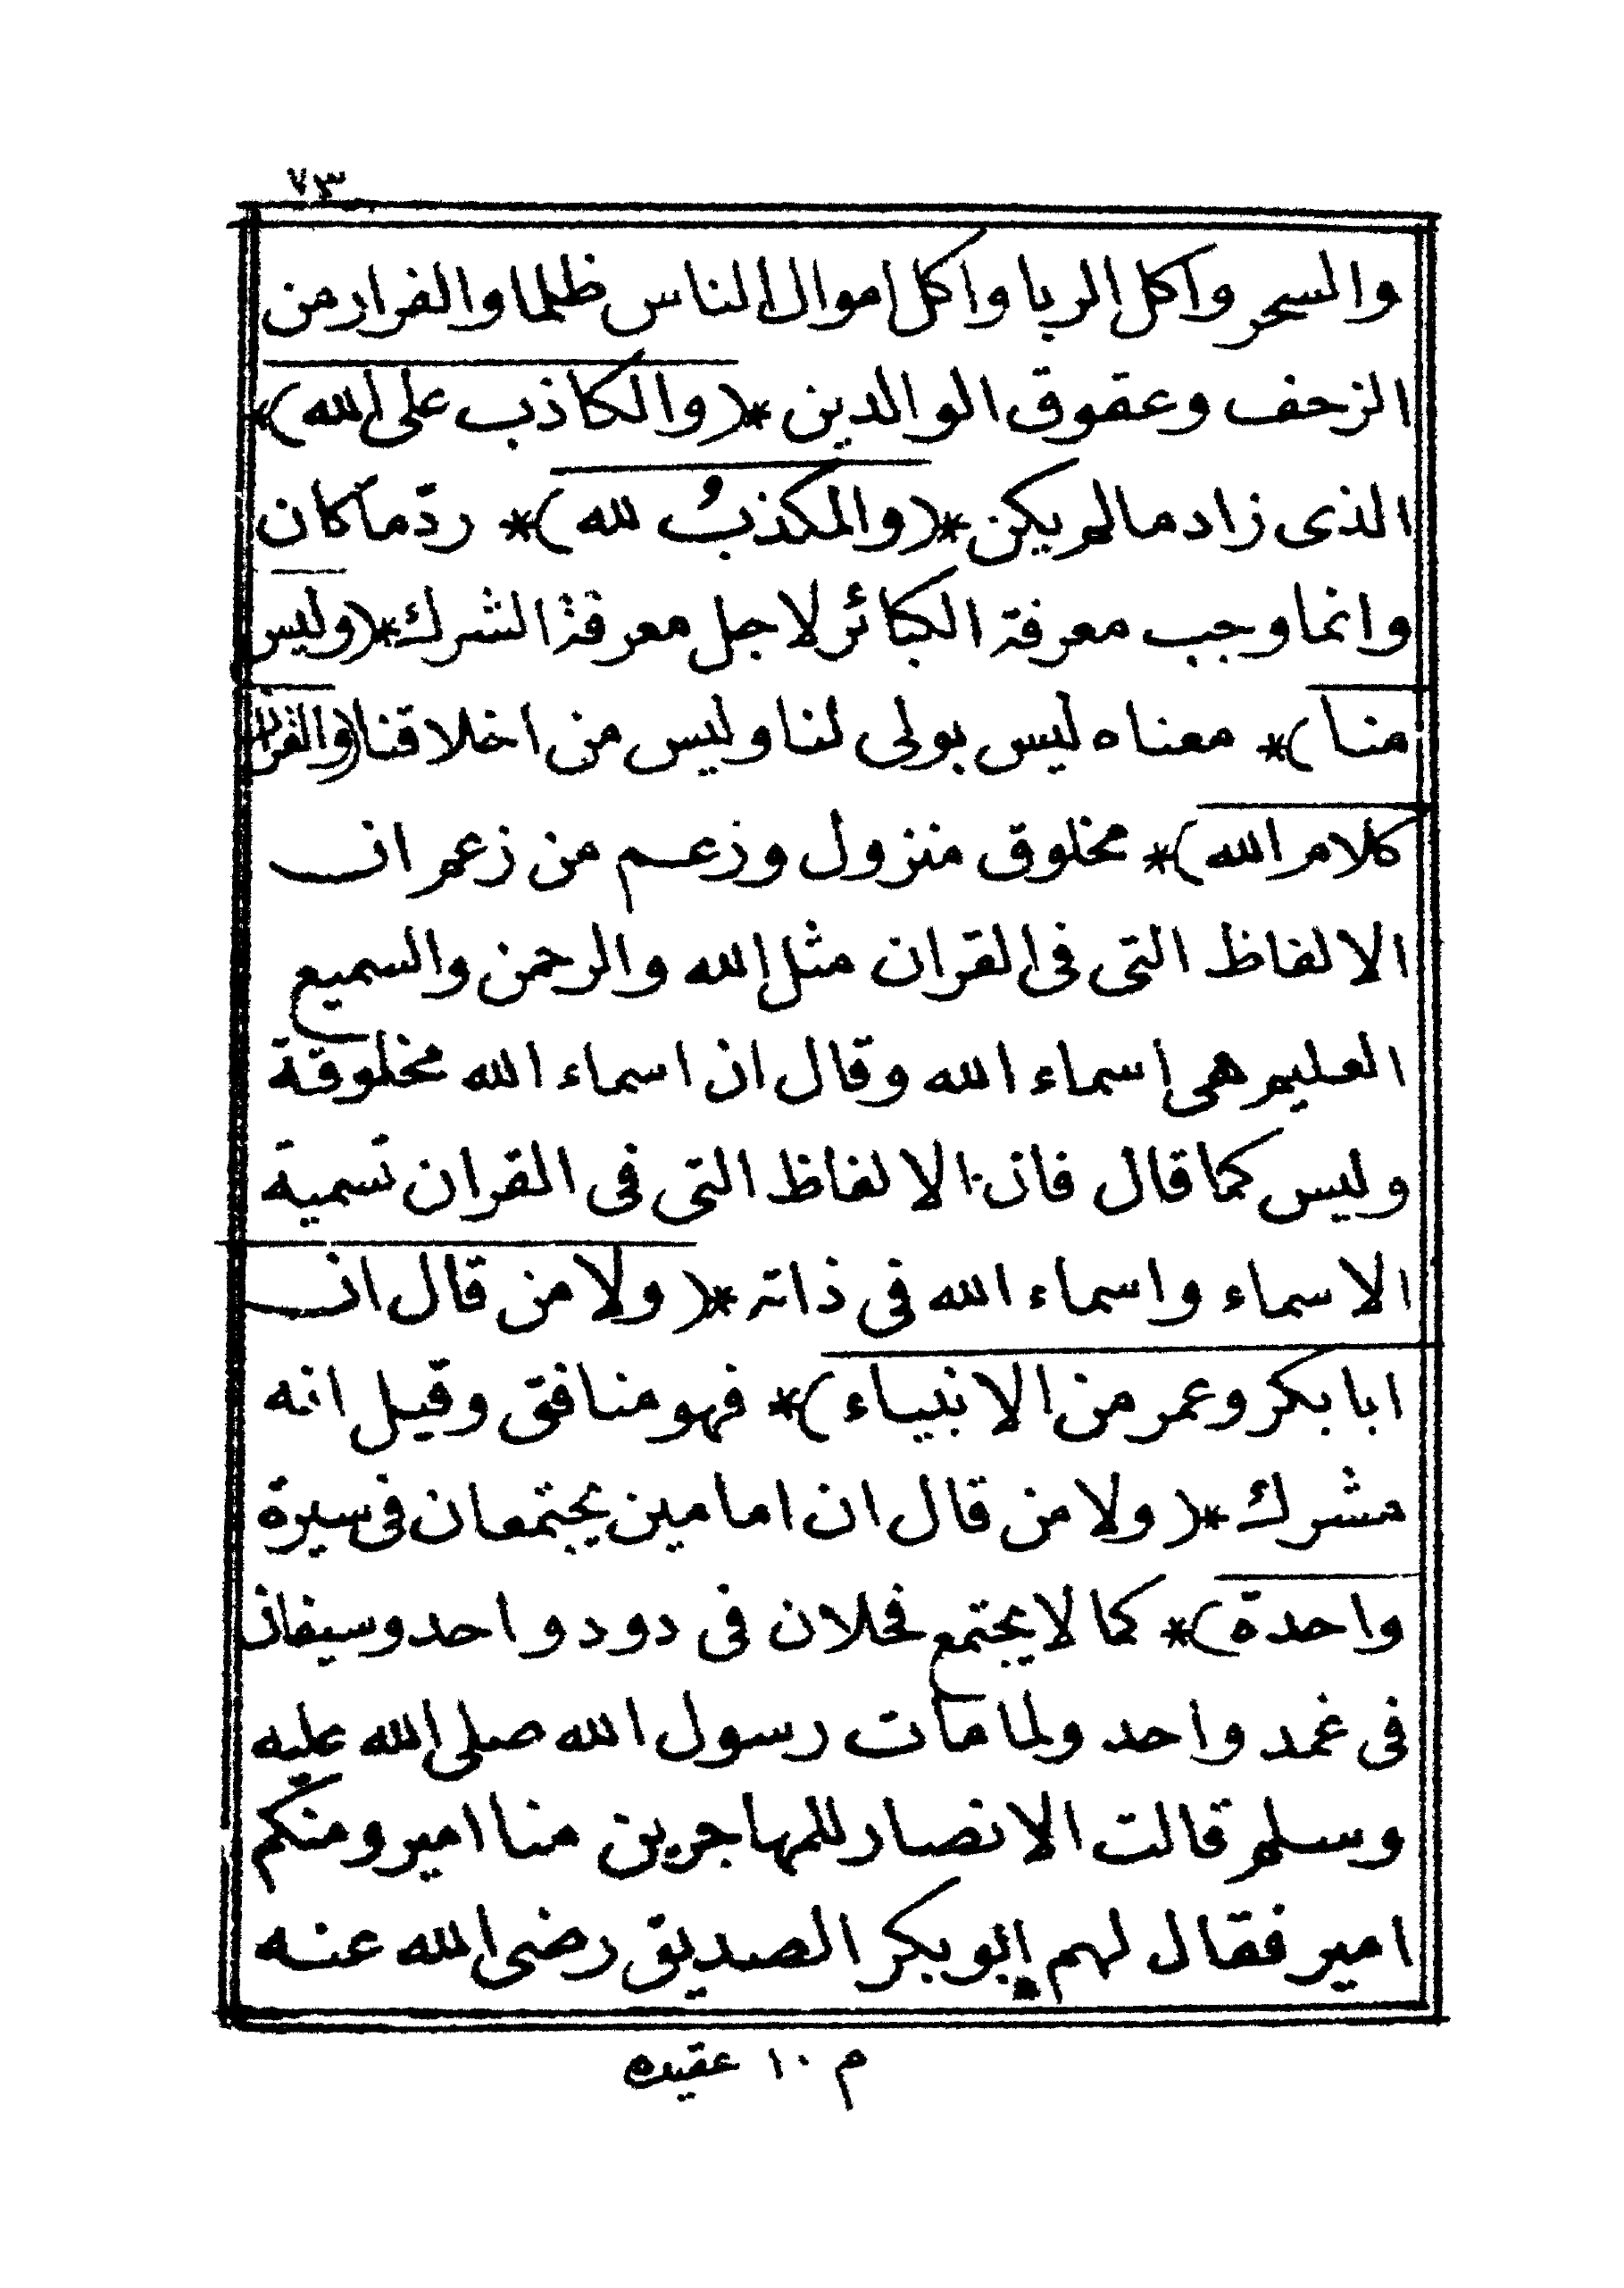 ٧٣
والسحر واكل الربا واكل اموال الناس ظلما والفرار من
الزحف وعقوق الوالدين *(والكاذب على الله)*
الذى زاد مالم يكن *(والمكذبُ لله)* ردّ ماكان
وانما وجب معرفة الكبائر لاجل معرفة الشرك *(وليس
منا)* معناه ليس بولى لنا وليس من اخلاقنا (والقران
كلام الله)* مخلوق منزول وزعم من زعم ان
الالفاظ التى فى القران مثل الله والرحمن والسميع
العليم هى اسماء الله وقال ان اسماء الله مخلوقة
وليس كما قال فان الالفاظ التى فى القران تسمية
الاسماء واسماء الله فى ذاته *(ولا من قال ان
ابا بكر وعمر من الانبياء)* فهو منافق وقيل انه
مشرك *(ولا من قال ان امامين يجتمعان فى سيرة
واحدة)* كما لا يجتمع فحلان فى دود واحد وسيفان
فى غمد واحد ولما مات رسول الله صلى الله عليه
وسلم قالت الانصار للمهاجرين منا امير ومنكم
امير فقال لهم ابو بكر الصديق رضى الله عنه
م ١٠ عقيده